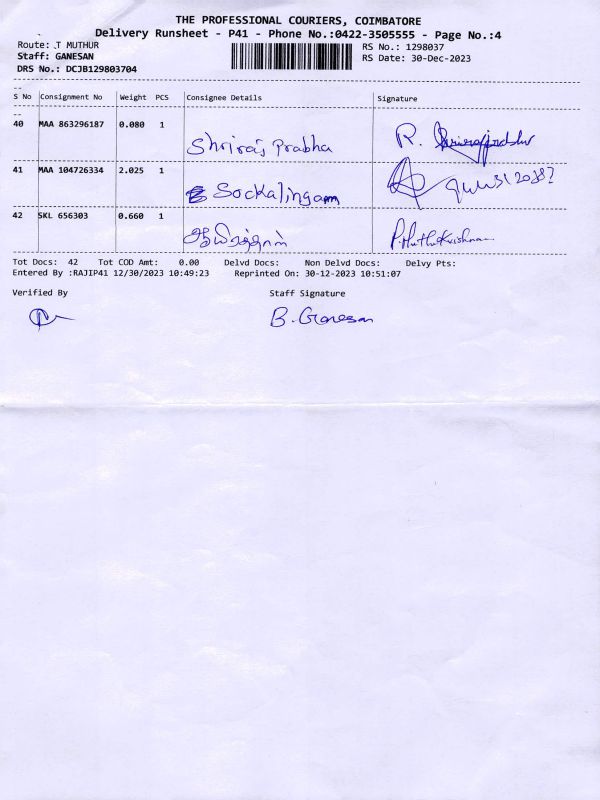 THE PROFESSIONAL COURIERS, COIMBATORE
Delivery Runsheet - P41 - Phone No.:0422-3505555 - Page No.:4
Route: .T MUTHUR RS No.: 1298037
Staff: GANESAN RS Date: 30-Dec-2023
DRS No.: DCJB129803704
S No Consignment No Weight PCS Consignee Details Signature
40 MAA 863296187 0.080 1
Shriraj Prabha R.
41 MAA 104726334 2.025 1
Sockalingam
42 SKL 656303 0.660 1
P.MuthuKrishnan
Tot Docs: 42 Tot COD Amt: 0.00 Delvd Docs: Non Delvd Docs: Delvy Pts:
Entered By :RAJIP41 12/30/2023 10:49:23 Reprinted On: 30-12-2023 10:51:07
Verified By Staff Signature
B.Ganesan